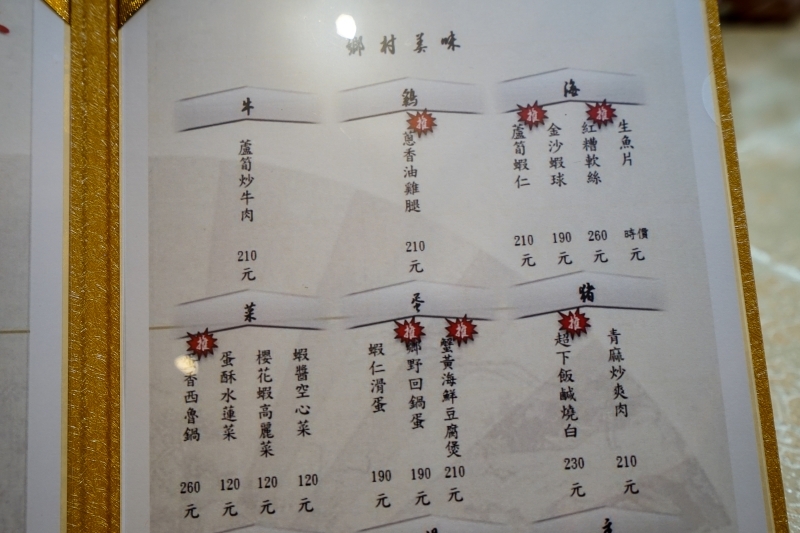 鄉村美味
牛
蘆筍炒牛肉
210元
鷄
推
蔥香油雞腿
210元
海
推
蘆筍蝦仁
210元
金沙蝦球
190元
推
紅糟軟絲
260元
生魚片
時價元
菜
推
香西魯鍋
260元
蛋酥水蓮菜
120元
櫻花蝦高麗菜
120元
蝦醬空心菜
120元
蛋
蝦仁滑蛋
190元
推
鄉野回鍋蛋
190元
推
蟹黃海鮮豆腐煲
210元
豬
推
超下飯鹹燒白
230元
青麻炒爽肉
210元